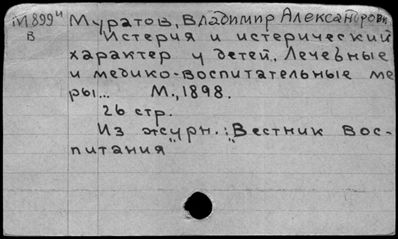 М899и Муратов, Владимир Александрович
В Истерия и истерический
характер у детей. Лечебные
и медико-воспитательные ме
ры... М., 1898.
26 стр.
Из журн.: „Вестник вос-
питания"